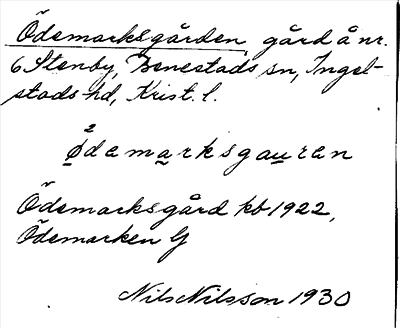 Ödemarksgården, gård å nr.
6 Stenby, Benestads sn, Ingel-
stads hd, Krist. l.
2
ødemarksgauren
Ödemarksgård kb 1922,
Ödemarken G
Nils Nilsson 1930